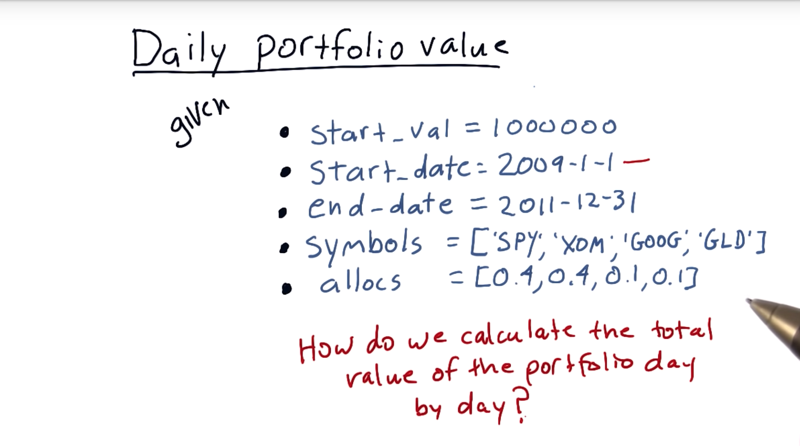 Daily portfolio value
given
• start_val = 1000000
• start_date = 2009-1-1 —
• end_date = 2011-12-31
• symbols = ['SPY', 'XOM', 'GOOG', 'GLD']
• allocs = [0.4, 0.4, 0.1, 0.1]
How do we calculate the total
value of the portfolio day
by day?